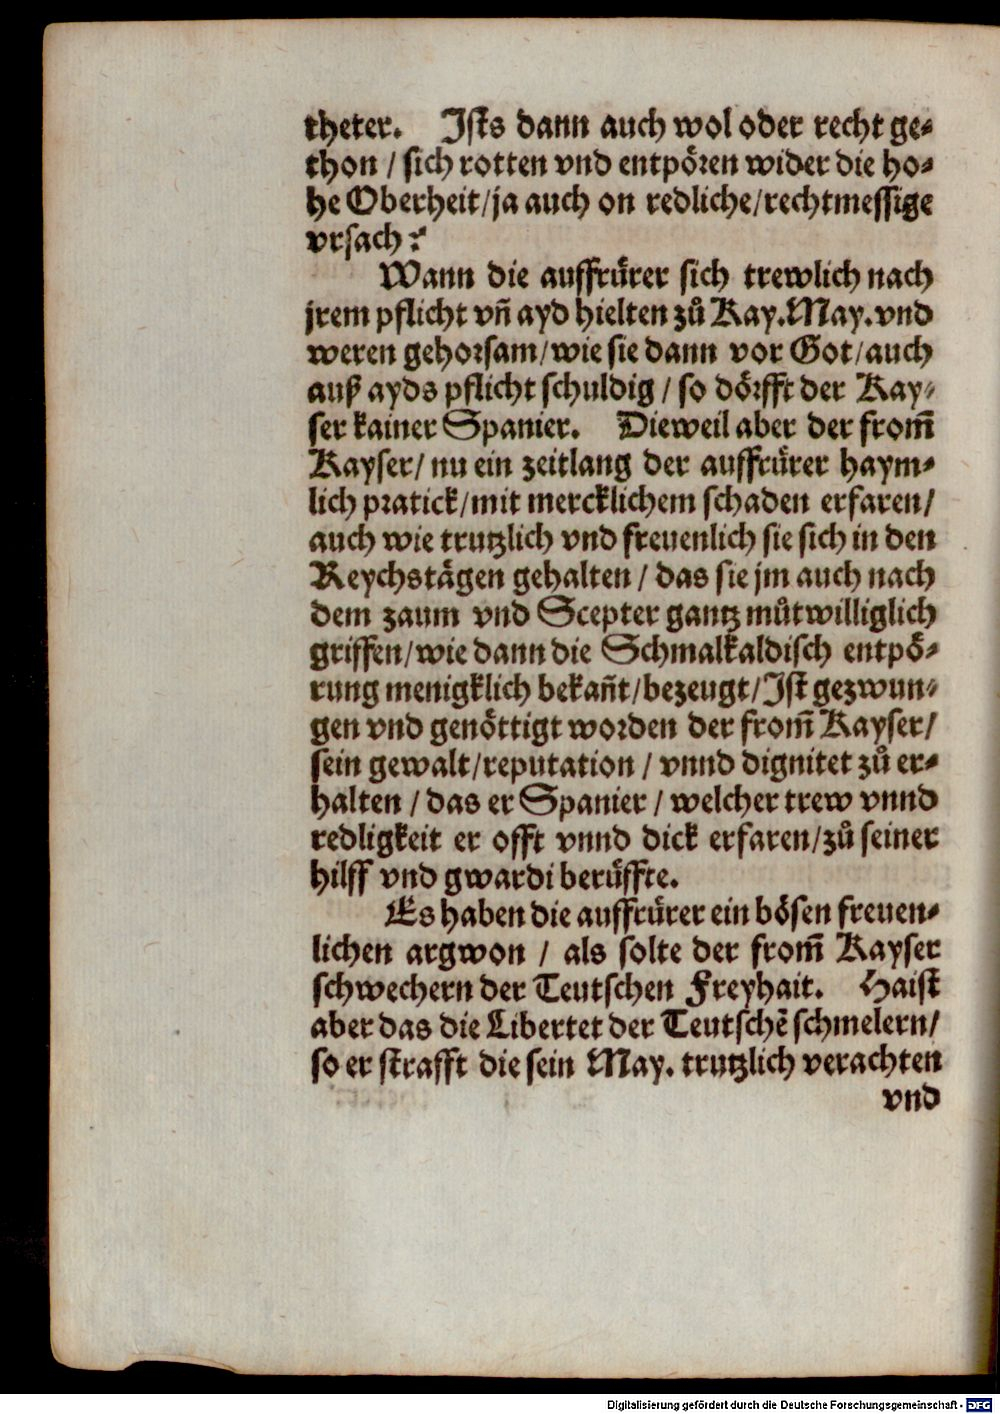 theter. Ists dann auch wol oder recht ge⸗
thon / sich rotten vnd entpören wider die ho⸗
he Oberheit/ja auch on redliche/rechtmessige
vrsach?
Wann die auffrürer sich trewlich nach
jrem pflicht vñ ayd hielten zů Kay.May.vnd
weren gehorsam/wie sie dann vor Got/auch
auß ayds pflicht schuldig / so dörfft der Kay⸗
ser kainer Spanier. Dieweil aber der from̃
Kayser/ nu ein zeitlang der auffrürer haym⸗
lich pratick/mit mercklichem schaden erfaren/
auch wie trutzlich vnd freuenlich sie sich in den
Reychstägen gehalten / das sie jm auch nach
dem zaum vnd Scepter gantz můtwilliglich
griffen/wie dann die Schmalkaldisch entpö⸗
rung menigklich bekañt/bezeugt/Ist gezwun⸗
gen vnd genöttigt worden der from̃ Kayser/
sein gewalt/reputation / vnnd dignitet zů er⸗
halten / das er Spanier / welcher trew vnnd
redligkeit er offt vnnd dick erfaren/zů seiner
hilff vnd gwardi berüffte.
Es haben die auffrürer ein bösen freuen⸗
lichen argwon / als solte der from̃ Kayser
schwechern der Teutschen Freyhait. Haist
aber das die Libertet der Teutschẽ schmelern/
so er strafft die sein May. trutzlich verachten
vnd
Digitalisierung gefördert durch die Deutsche Forschungsgemeinschaft - DFG